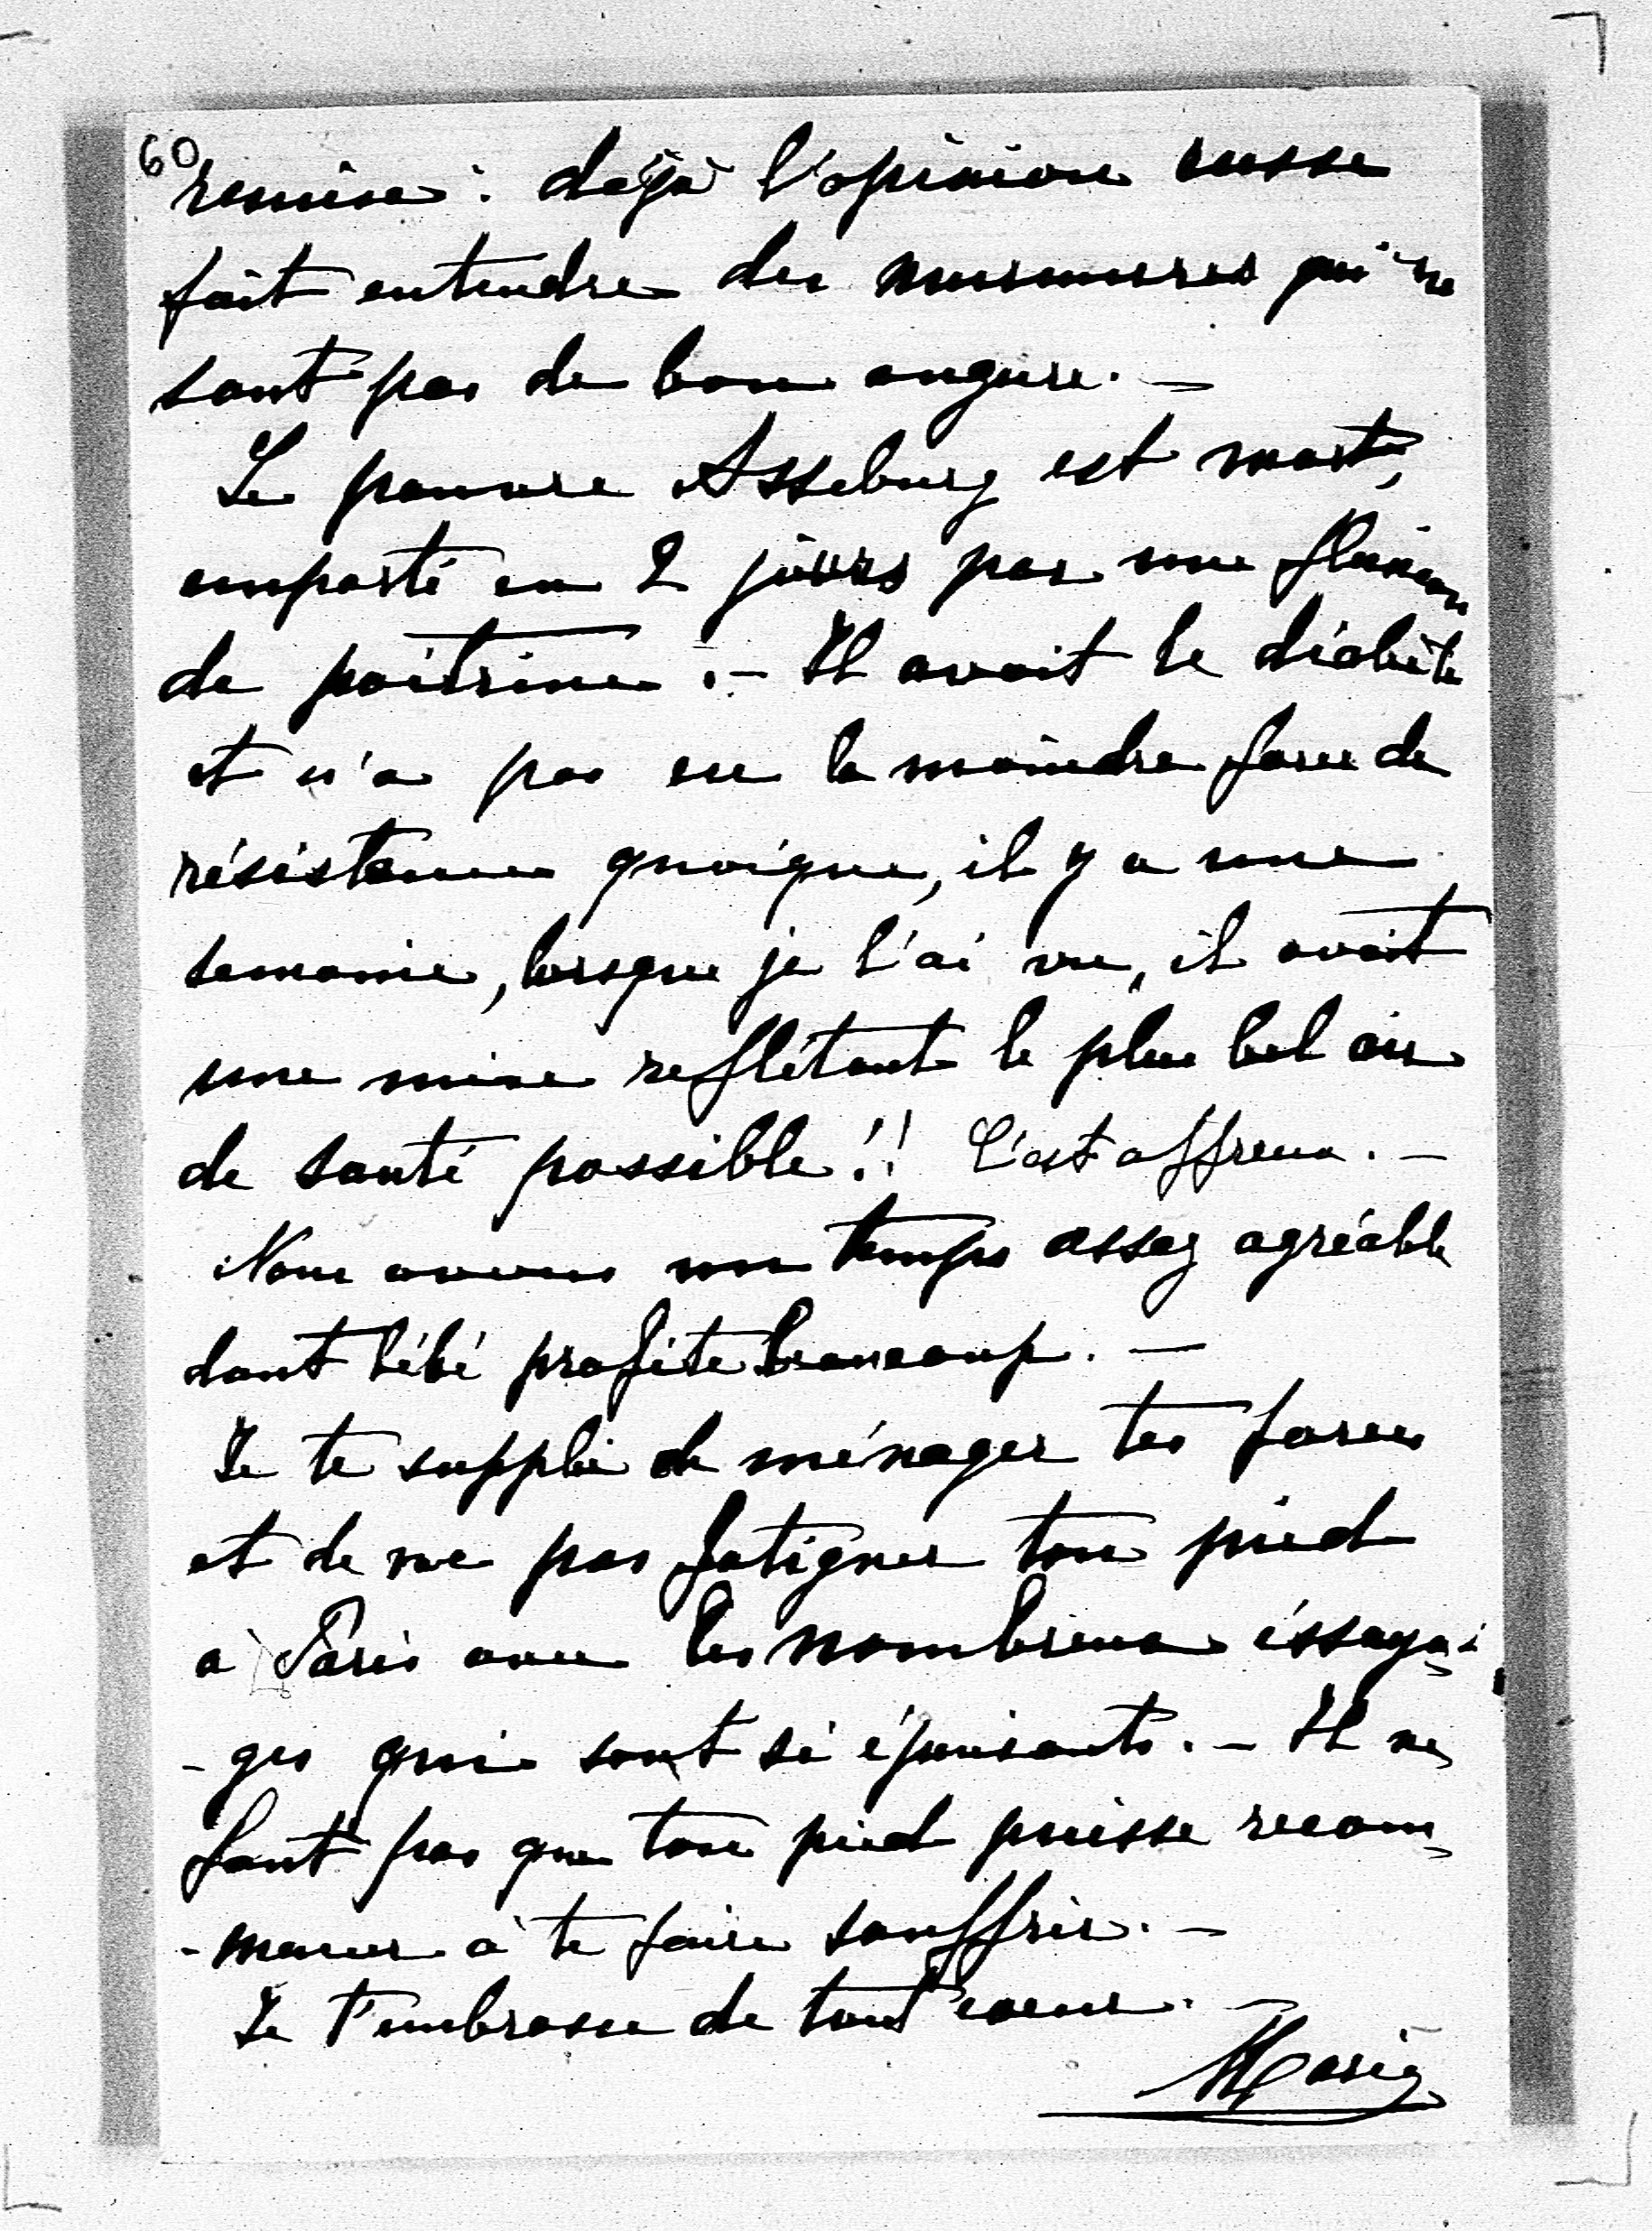 60
remise : déjà l'opinion russe
fait entendre des murmures qui ne
sont pas de bon augure. —
Le pauvre Asseburg est mort,
emporté en 2 jours par une fluxion
de poitrine . — Il avait le diabète
et n'a pas eu la moindre force de
résistance quoique, il y a une
semaine, lorsque je l'ai vu, il avait
une mine reflétant le plus bel air
de santé possible !! C'est affreux. —
Nous avons un temps assez agréable
dont bébé profite beaucoup. —
Je te supplie de ménager tes forces
et de ne pas fatiguer ton pied
à Paris avec les nombreux éssaya-
- ges qui sont si épuisants. — Il ne
faut pas que ton pied puisse recom-
- mencer à te faire souffrir. —
Je t'embrasse de tout coeur. —
Marie